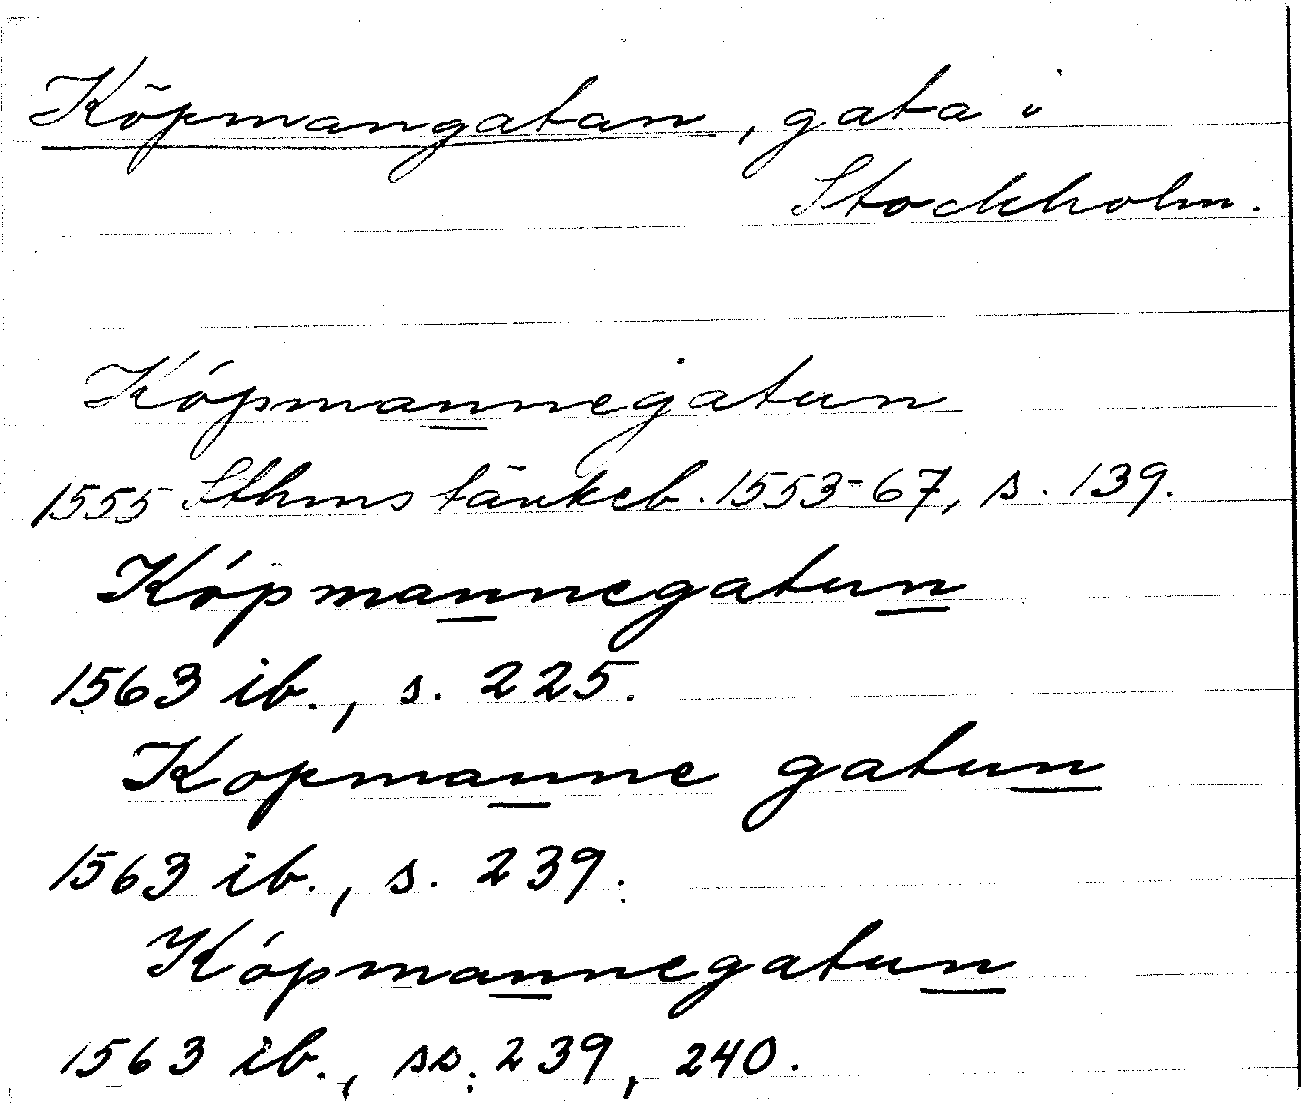 Köpmangatan, gata i
Stockholm.
Kópmannegatun
1555 Sthms tänkeb. 1553-67, s. 139.
Kópmannegatun
1563 ib., s. 225.
Kopmanne gatun
1563 ib., s. 239.
Kópmannegatun
1563 ib., ss. 239, 240.